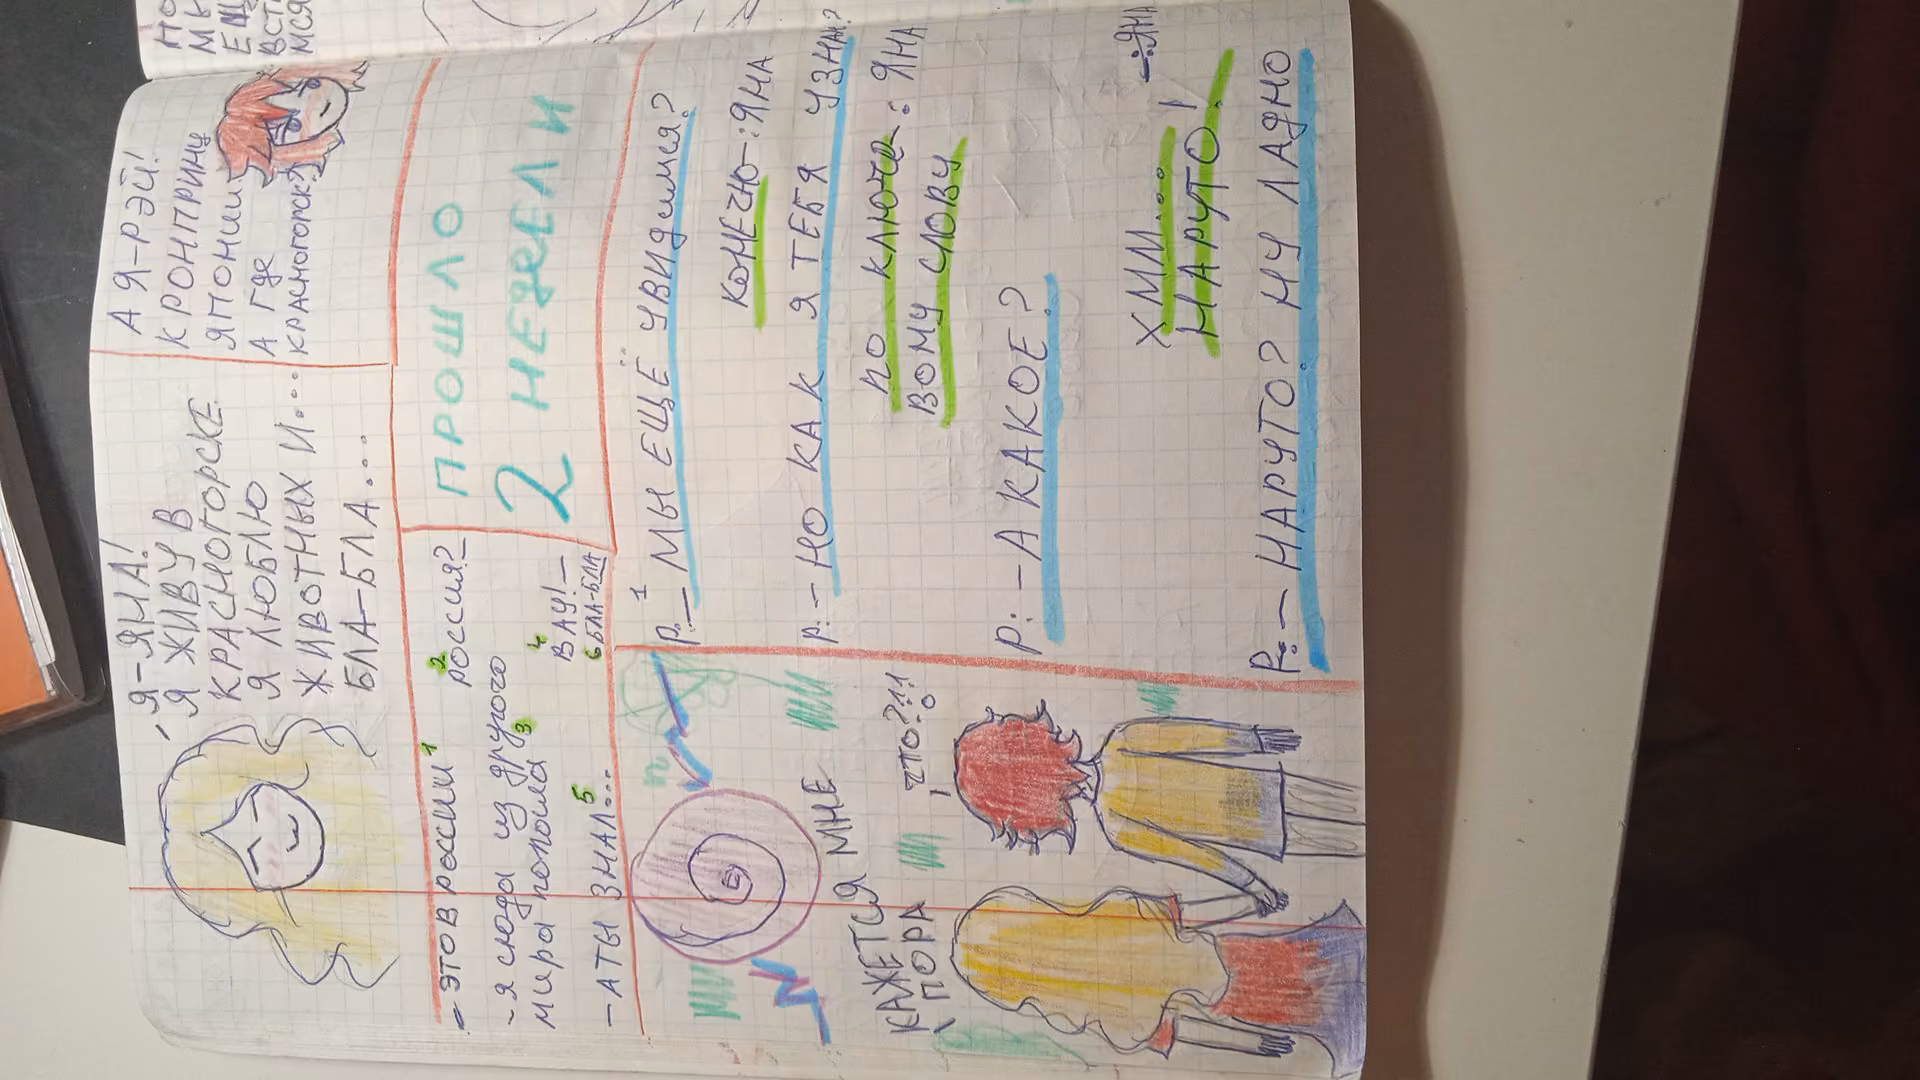 - Я-ЯНА!
Я ЖИВУ В
КРАСНОГОРСКЕ
Я ЛЮБЛЮ
ЖИВОТНЫХ И...
БЛА-БЛА...
А Я-РЭЙ!
КРОНПРИНЦ
ЯПОНИИ
А ГДЕ
КРАСНОГОРСК?
- ЭТО В РОССИИ 1
2
РОССИЯ?
- Я сюда из другого
мира попала 3
4
ВАУ! -
- А ТЫ ЗНАЛ... 5
6 БЛА-БЛА
ПРОШЛО
2 НЕДЕЛИ
КАЖЕТСЯ МНЕ
ПОРА
ЧТО?!!
1
Р: - МЫ ЕЩЁ УВИДИМСЯ?
КОНЕЧНО -: ЯНА
Р: - НО КАК Я ТЕБЯ УЗНАЮ?
ПО КЛЮЧЕ- : ЯНА
ВОМУ СЛОВУ
Р: - А КАКОЕ?
ХММ... -: ЯНА
НАРУТО!
Р: - НАРУТО? НУ ЛАДНО
ПО
МК
ЕЩ
ВСТ
МСЯ